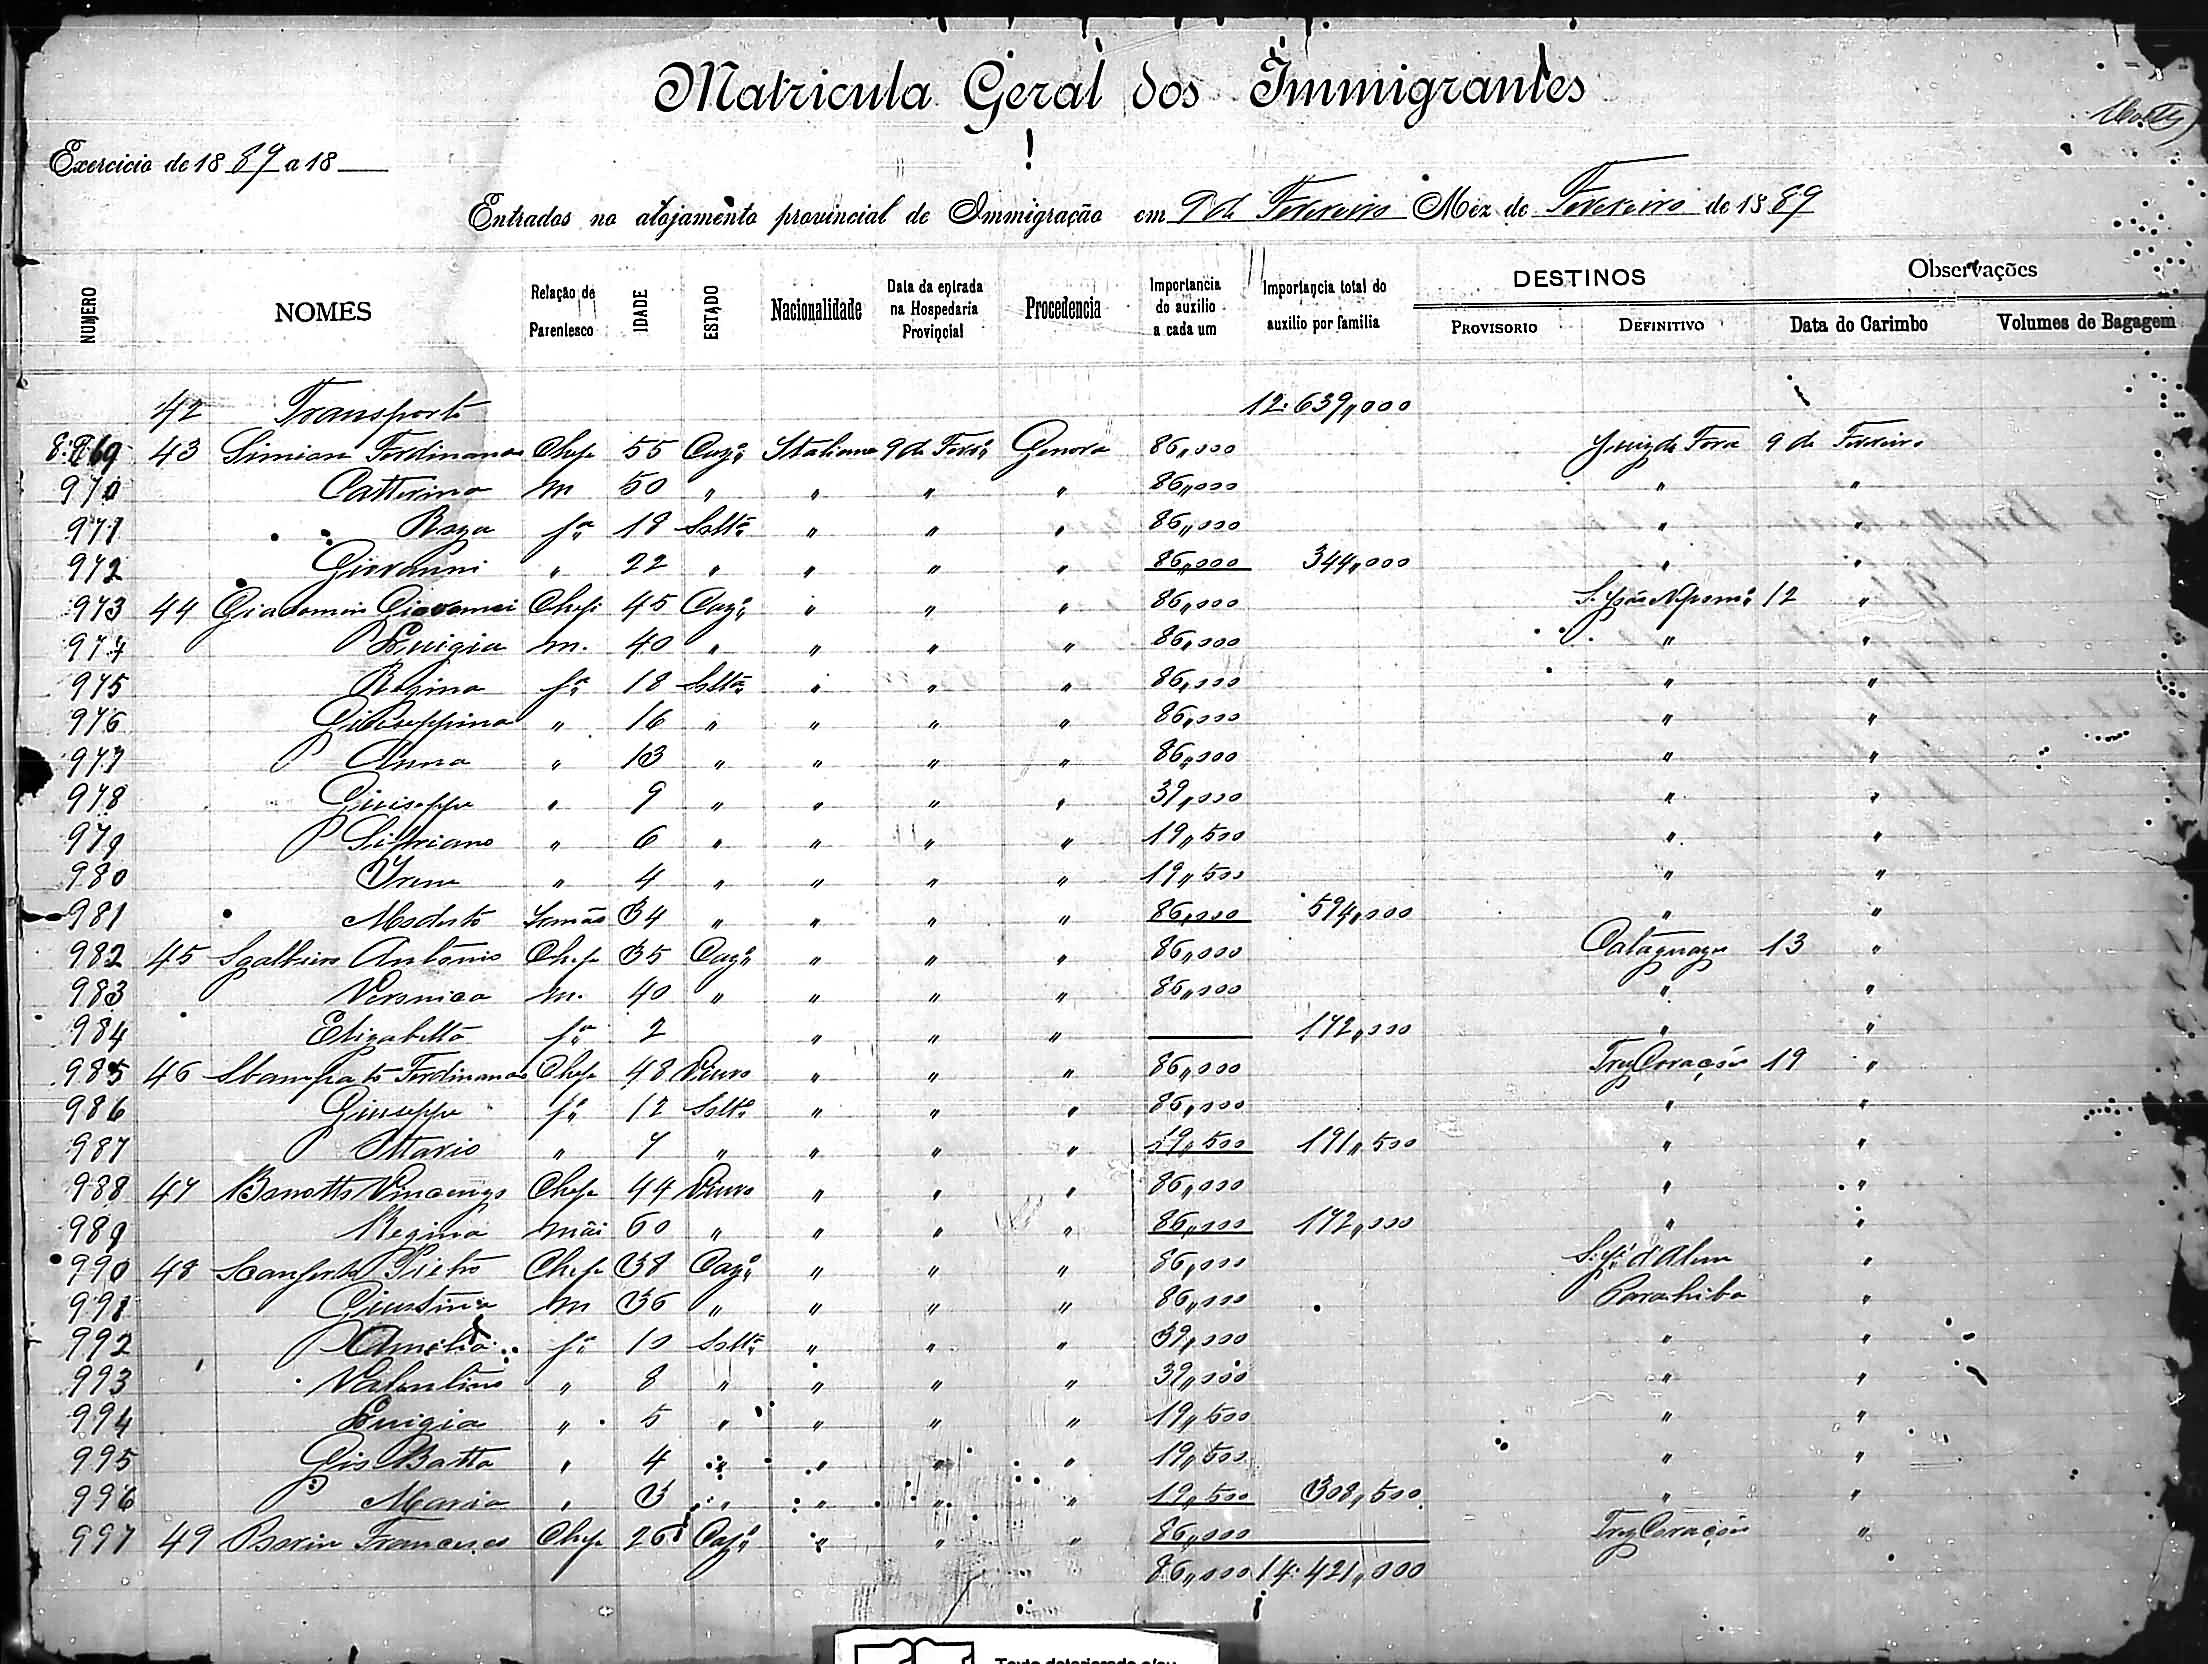 Matricula Geral dos Immigrantes
Exercicio de 18 89 a 18
Entrados no alojamento provincial de Immigração em 9 de Fevereiro Mez de Fevereiro de 1889
NUMERO NOMES Relação de Parentesco IDADE ESTADO Nacionalidade Data da entrada na Hospedaria Provincial Procedencia Importancia do auxilio a cada um Importancia total do auxilio por familia DESTINOS PROVISORIO DEFINITIVO Observações Data do Carimbo Volumes de Bagagem
42 Transporte 12:639,000
43 Simion Ferdinando Chefe 55 Cazº Italiana 9 de Fevrº Genova 86,000 Juiz de Fora 9 de Fevereiro
970 Catterina m 50 " " " " 86,000 " "
971 Roza fª 18 Soltª " " " 86,000 " "
972 Giovanni " 22 " " " " 86,000 344,000 " "
973 44 Giacomin Giovanni Chefe 45 Cazº " " " 86,000 S. João Nepomº 12 "
974 Luigia m. 40 " " " " 86,000 " "
975 Regina fª 18 Soltª " " " 86,000 " "
976 Giuseppina " 16 " " " " 86,000 " "
977 Anna " 13 " " " " 86,000 " "
978 Giuseppe " 9 " " " " 39,000 " "
979 Sipriano " 6 " " " " 19,500 " "
980 Irene " 4 " " " " 19,500 " "
981 Modesto Irmão 34 " " " " 86,000 594,000 " "
982 45 Antonio Chefe 35 Cazº " " " 86,000 Cataguazes 13 "
983 Veronica m. 40 " " " " 86,000 " "
984 Elizabetta fª 2 " " " 172,000 " "
985 46 Stampato Ferdinando Chefe 48 Viuvo " " " 86,000 Trez Corações 19 "
986 Giuseppe fº 12 Soltº " " " 86,000 " "
987 Ottavio " 7 " " " " 19,500 191,500 " "
988 47 Bonotto Vincenzo Chefe 44 Viuvo " " " 86,000 " "
989 Regina mãi 60 " " " " 86,000 172,000 " "
990 48 Pietro Chefe 38 Cazº " " " 86,000 S. José d'Alem "
991 Giustina m 36 " " " " 86,000 Parahiba "
992 Amelia fª 10 Soltª " " " 39,000 " "
993 Valentino " 8 " " " " 39,000 " "
994 Luigia " 5 " " " " 19,500 " "
995 Gio Batta " 4 " " " " 19,500 " "
996 Maria " 3 " " " " 19,500 308,500 " "
997 49 Borin Francesco Chefe 26 Cazº " " " 86,000 Trez Corações "
86,000 14:421,000